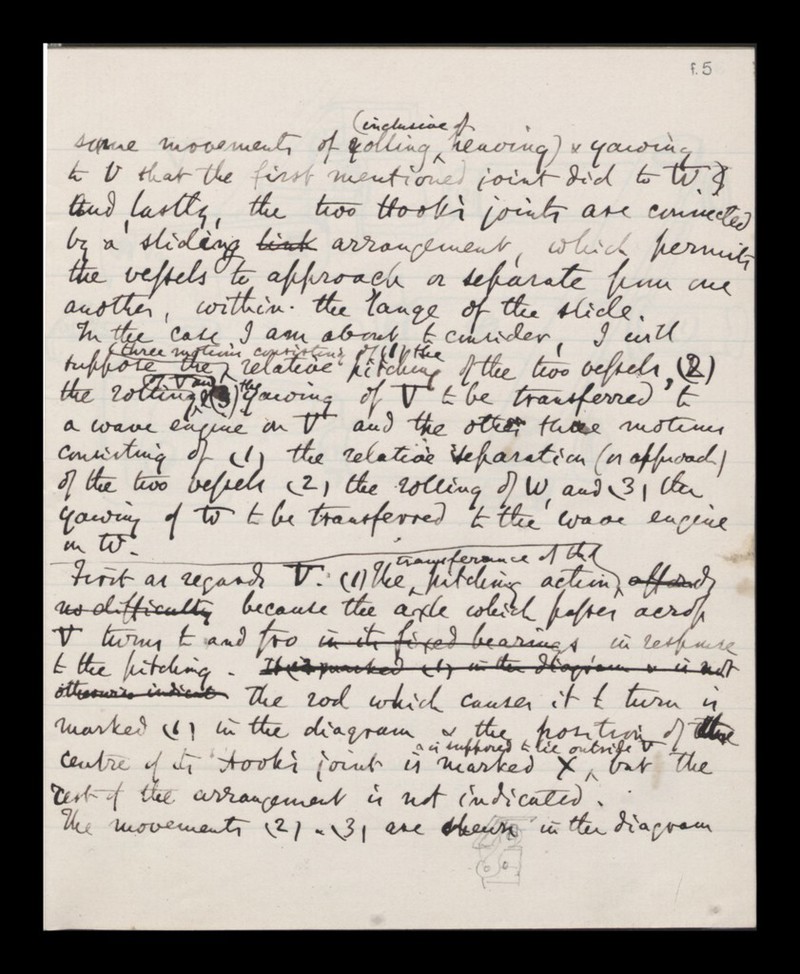 f.5
(inclusive of
same movements of rolling, heaving) & yawing
to V that the first mentioned joint did to W.
And, lastly, the two Hook's joints are connected
by a sliding link arrangement, which permits
the vessels to approach or separate from one
another, within the range of the slide.
In the case I am about to consider, I will
three motions, consisting of (1) the
suppose the relative pitching of the two vessels, (2)
of V and the
the rolling (3) yawing of V to be transferred to
a wave engine on V and the other three motions
consisting of (1) the relative separation (or approach)
of the two vessels (2) the rolling of W, and (3) the
yawing of W to be transferred to the wave engine
on W.
transference of the
First as regards V. (1) The pitching action, affords
no difficulty because the axle which passes across
V turns to and fro in its fixed bearings in response
to the pitching. It is marked (1) in the diagram & is not
otherwise indicated The rod which causes it to turn is
marked (1) in the diagram & the position of the
& is supposed to lie outside V
centre of its Hook's joint is marked X, but the
rest of the arrangement is not indicated.
The movements (2) & (3) are shewn in the diagram